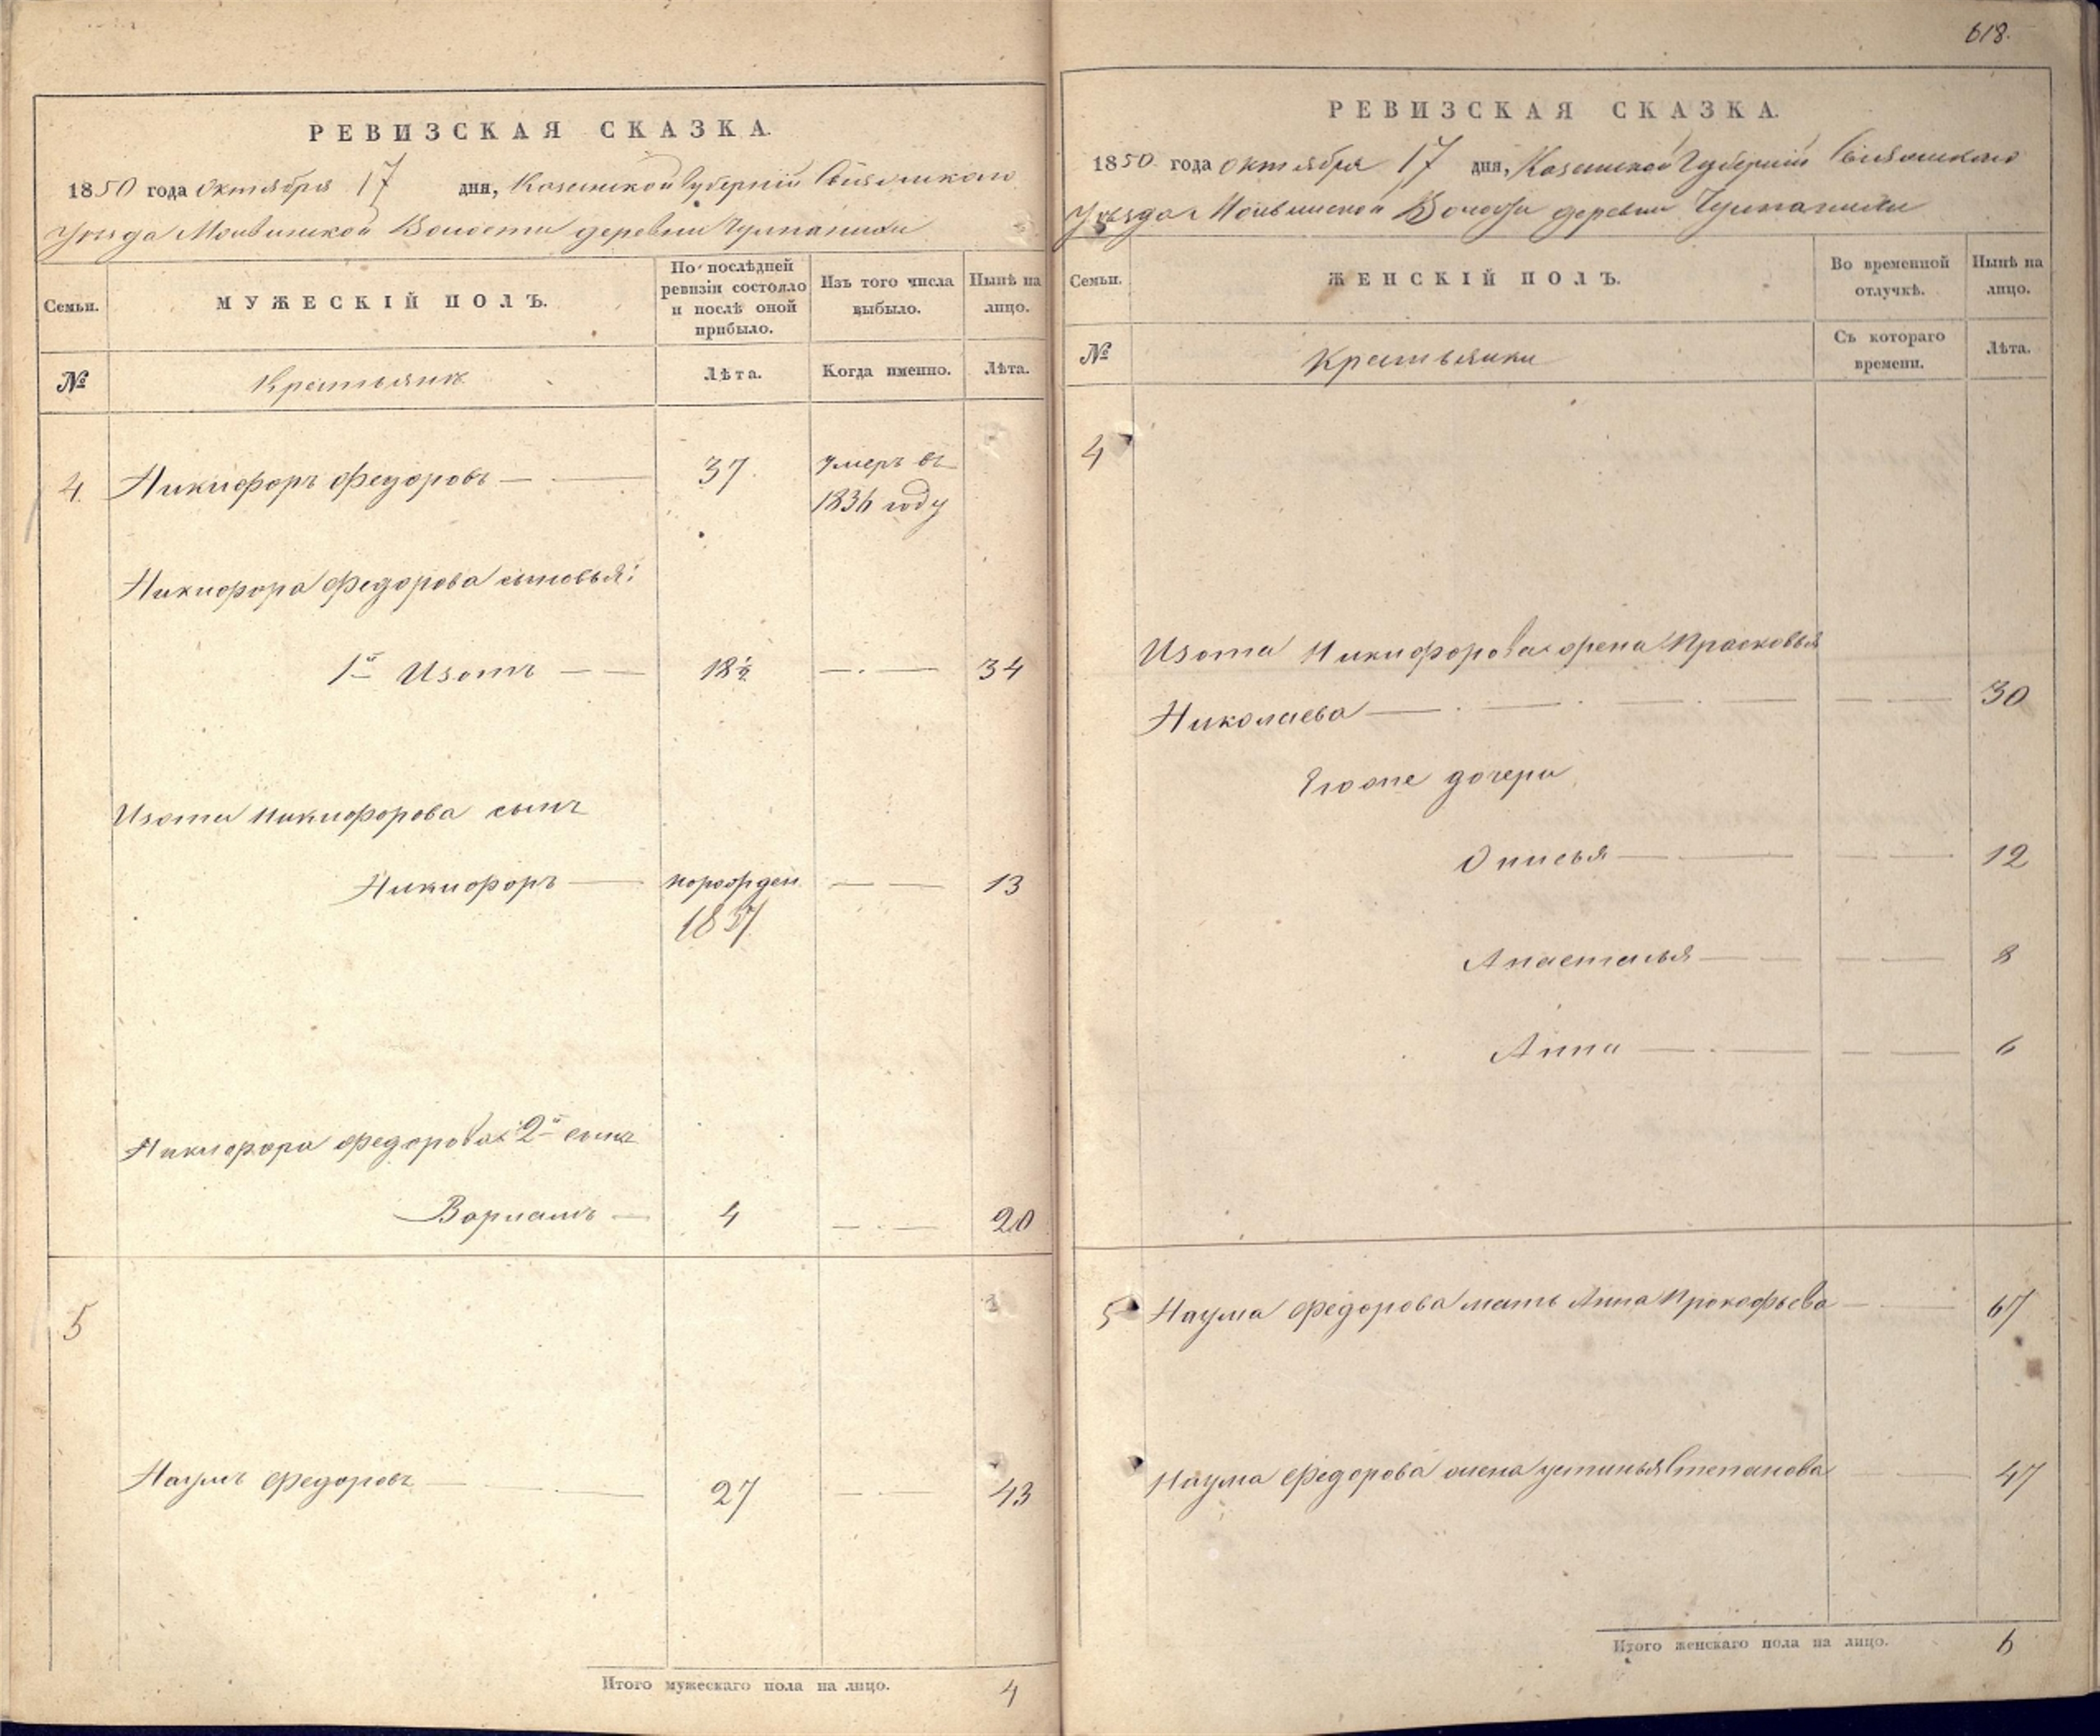 618.
РЕВИЗСКАЯ СКАЗКА.
1850 года октября 17 дня, Казанской Губернии Свияжскаго
Уѣзда Волости деревни
Семьи.
МУЖЕСКІЙ ПОЛЪ.
По послѣдней
ревизіи состояло
и послѣ оной
прибыло.
Изъ того числа
выбыло.
Нынѣ на
лицо.
№
Крестьянъ
Лѣта.
Когда именно.
Лѣта.
4. Никифоръ Федоровъ — — 37. умеръ въ
1836 году
Никифора Федорова сыновья:
1й Изотъ — — 18½ —.— 34
Изота Никифорова сынъ
Никифоръ — новорожден. — — 13
1837
Никифора Федорова 2й сынъ
Варламъ — 4 —.— 20
5
Наумъ Федоровъ — — — 27 — — 43
Итого мужескаго пола на лицо. 4
РЕВИЗСКАЯ СКАЗКА.
1850 года октября 17 дня, Казанской Губернии Свияжскаго
Уѣзда Волости деревни
Семьи.
ЖЕНСКІЙ ПОЛЪ.
Во временной
отлучкѣ.
Нынѣ на
лицо.
№
Крестьянки
Съ котораго
времени.
Лѣта.
4
Изота Никифорова жена Прасковья
Николаева — . — . — . — — — 30
Егоже дочери
Анисья — . — — — 12
Анастасья — — — — 8
Анна — . — — — 6
5 Наума Федорова мать Анна Прокофьева — — 67
Наума Федорова жена устинья Степанова — 47
Итого женскаго пола на лицо. 6